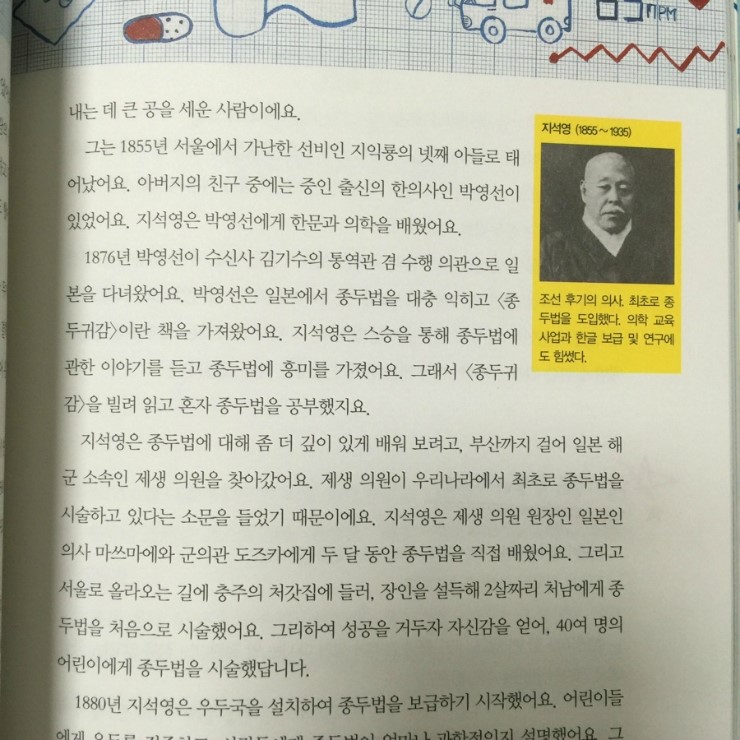 내는 데 큰 공을 세운 사람이에요.
그는 1855년 서울에서 가난한 선비인 지익룡의 넷째 아들로 태
어났어요. 아버지의 친구 중에는 중인 출신의 한의사인 박영선이
있었어요. 지석영은 박영선에게 한문과 의학을 배웠어요.
1876년 박영선이 수신사 김기수의 통역관 겸 수행 의관으로 일
본을 다녀왔어요. 박영선은 일본에서 종두법을 대충 익히고 〈종
두귀감〉이란 책을 가져왔어요. 지석영은 스승을 통해 종두법에
관한 이야기를 듣고 종두법에 흥미를 가졌어요. 그래서 〈종두귀
감〉을 빌려 읽고 혼자 종두법을 공부했지요.
지석영은 종두법에 대해 좀 더 깊이 있게 배워 보려고, 부산까지 걸어 일본 해
군 소속인 제생 의원을 찾아갔어요. 제생 의원이 우리나라에서 최초로 종두법을
시술하고 있다는 소문을 들었기 때문이에요. 지석영은 제생 의원 원장인 일본인
의사 마쓰마에와 군의관 도즈카에게 두 달 동안 종두법을 직접 배웠어요. 그리고
서울로 올라오는 길에 충주의 처갓집에 들러, 장인을 설득해 2살짜리 처남에게 종
두법을 처음으로 시술했어요. 그리하여 성공을 거두자 자신감을 얻어, 40여 명의
어린이에게 종두법을 시술했답니다.
1880년 지석영은 우두국을 설치하여 종두법을 보급하기 시작했어요. 어린이들
지석영 (1855～1935)
조선 후기의 의사. 최초로 종
두법을 도입했다. 의학 교육
사업과 한글 보급 및 연구에
도 힘썼다.